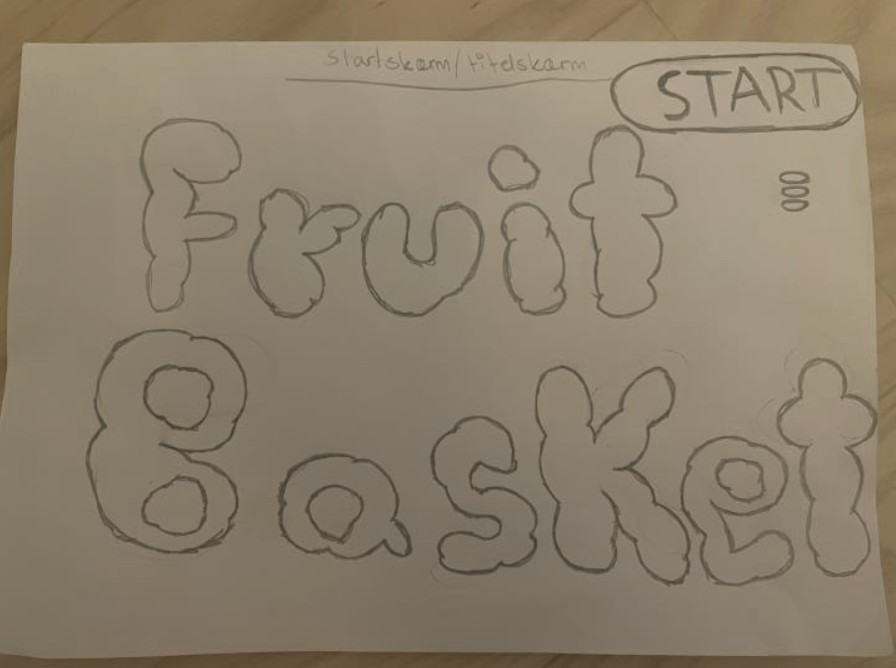 startskærm/titelskærm
START
Fruit
Basket